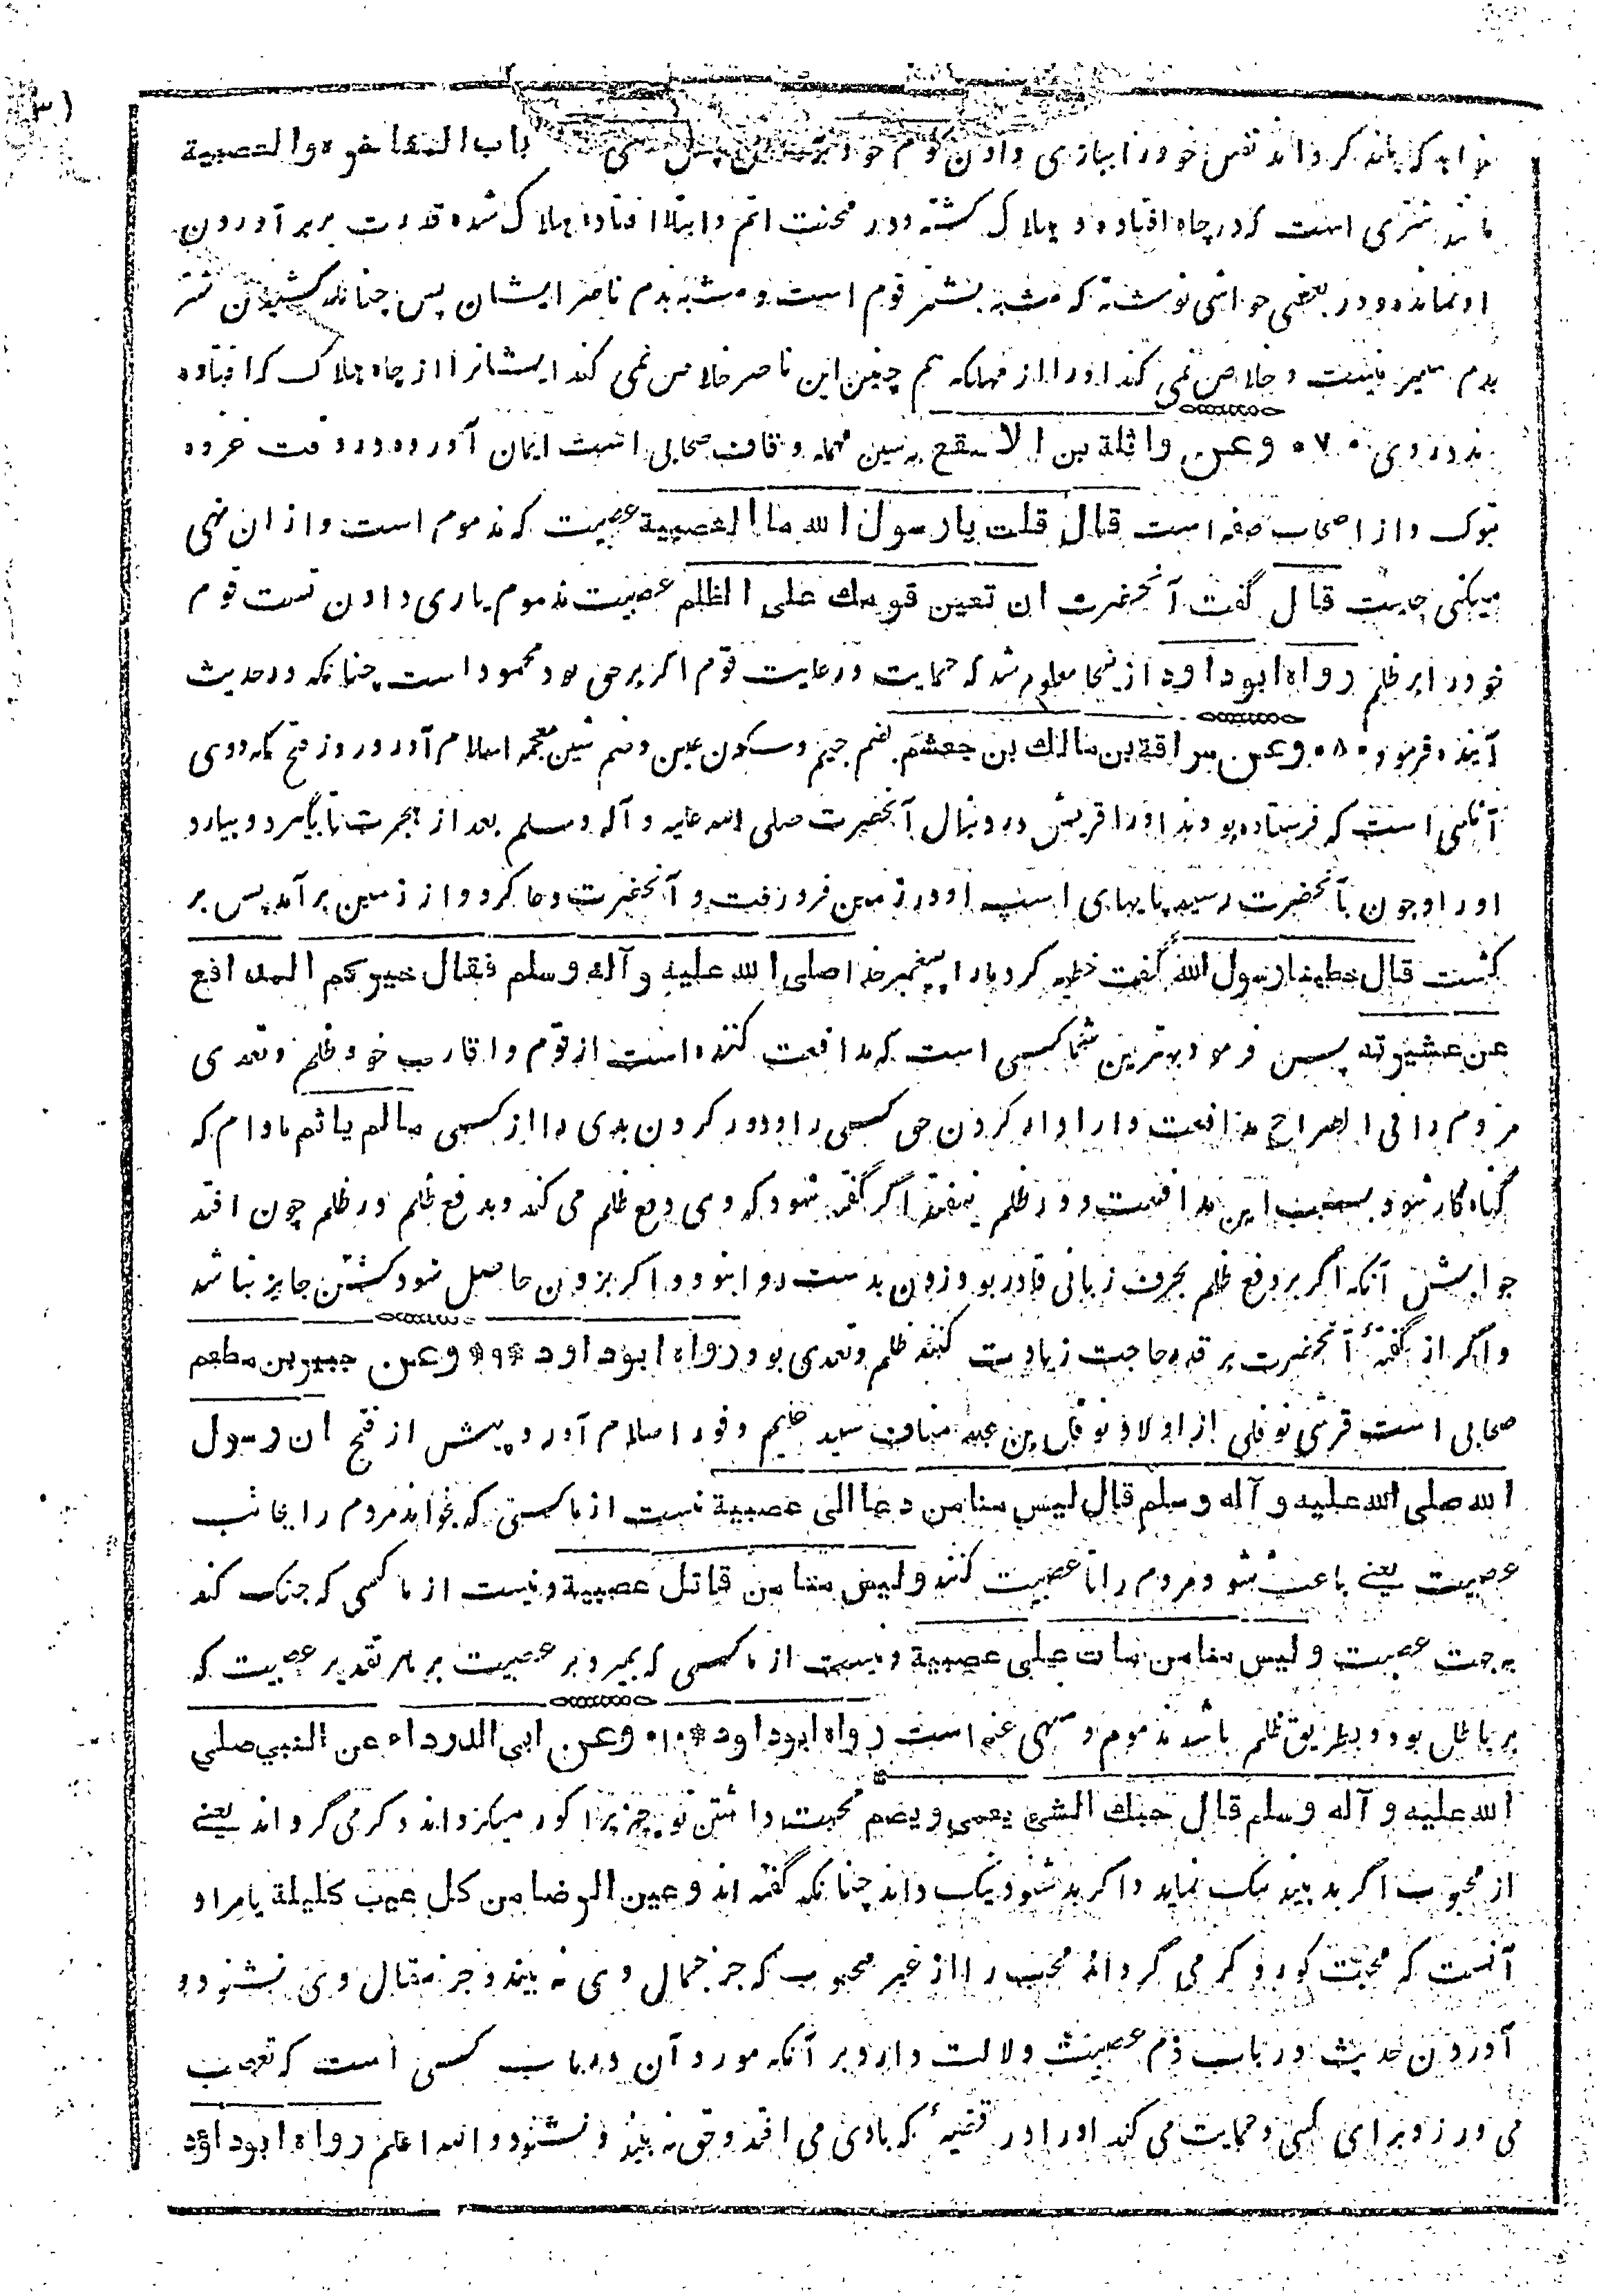 که بلند گرداند نفس خود را بیاری دادن قوم خود باب المفاخرة والعصبية
مانند شتری است که در چاه افتاده و هلاک گشته و در محنت اثم و ابتلا افتاده هلاک شده قدرت بر بر آوردن
او نمانده و در بعضی حواشی نوشته که مشبه بشتر قوم است و مشبه بدم ناصر ایشان پس چنانکه کشیدن شتر
بدم میسر نیست و خلاص نمی کند او را از مهلکه هم چنین این ناصر خلاص نمی کند ایشانرا از چاه هلاک که افتاده
ند در وی * ۷ * وعن واثلة بن الاسقع به سین مهمله و قاف صحابی است ایمان آورده در وقت غزوه
تبوک و از اصحاب صفه است قال قلت يا رسول الله ما العصبية عصبیت که مذموم است و از ان نهی
میکنی چیست قال گفت آنحضرت ان تعين قومك على الظلم عصبیت مذموم یاری دادن تست قوم
خود را بر ظلم رواه ابو داود ازینجا معلوم شد که حمایت و رعایت قوم اگر بر حق بود محمود است چنانکه در حدیث
آینده فرمود * ۸ * وعن سراقة بن مالك بن جعشم بضم جیم و سکون عین و ضم شین معجمه اسلام آورد روز فتح مکه و وی
آنکسی است که فرستاده بودند او را قریش در دنبال آنحضرت صلی الله علیه و آله وسلم بعد از هجرت تا بگیرد و بیارد
او را و چون بآنحضرت رسید پایهای اسپ او در زمین فرو رفت و آنحضرت دعا کرد و از زمین بر آمد پس بر
گشت قال خطبنا رسول الله گفت خطبه کرد ما را پیغمبر خدا صلى الله عليه و آله وسلم فقال خيركم المدافع
عن عشيرته پس فرمود بهترین شما کسی است که مدافعت کننده است از قوم و اقارب خود ظلم و تعدی
مردم را فی الصراح مدافعت دار ادا کردن حق کسی را و دور کردن بدی را از کسی مالم يأثم مادام که
گناه گار نشود بسبب این مدافعت و در ظلم نیفتد اگر گفته شود که وی دفع ظلم می کند و بدفع ظلم در ظلم چون افتد
جوابش آنکه اگر بر دفع ظلم بحرف زبانی قادر بود زدن بدست روا نبود و اگر بزدن حاصل شود کشتن جایز نباشد
و اگر از گفته آنحضرت بر قدر حاجت زیادت کنند ظلم و تعدی بود رواه ابو داود * ۹ * وعن جبير بن مطعم
صحابی است قرشی نوفلی از اولاد نوفل بن عبد مناف سید حلیم وقور اسلام آورد پیش از فتح ان رسول
الله صلى الله عليه و آله وسلم قال ليس منا من دعا الى عصبية نیست از ما کسی که بخواند مردم را بجانب
عصبیت یعنے باعث شود مردم را تا عصبیت کنند وليس منا من قاتل عصبية و نیست از ما کسی که جنگ کند
به جهت عصبیت وليس منا من مات على عصبية و نیست از ما کسی که بمیرد بر عصبیت بر هر تقدیر عصبیت که
بر باطل بود و بطریق ظلم باشد مذموم و منهی عنه است رواه ابو داود * ۱۰ * وعن ابي الدرداء عن النبي صلى
الله عليه و آله وسلم قال حبك الشئ يعمي ويصم محبت داشتن تو چیز را کور میگرداند و کر می گرداند یعنے
از محبوب اگر بد بیند نیک نماید و اگر بد شنود نیک داند چنانکه گفته اند وعين الرضا من كل عيب كليلة یا مراد
آنست که محبت کور و کر می گرداند محب را از غیر محبوب که جز جمال وی نه بیند و جز مقال وی نشنود و
آوردن حدیث در باب ذم عصبیت دلالت دارد بر آنکه مورد آن در باب کسی است که تعصب
می ورزد برای کسی و حمایت می کند او را در قضیهٔ که بادی می افتد و حق نه بیند و نشنود والله اعلم رواه ابو داؤد